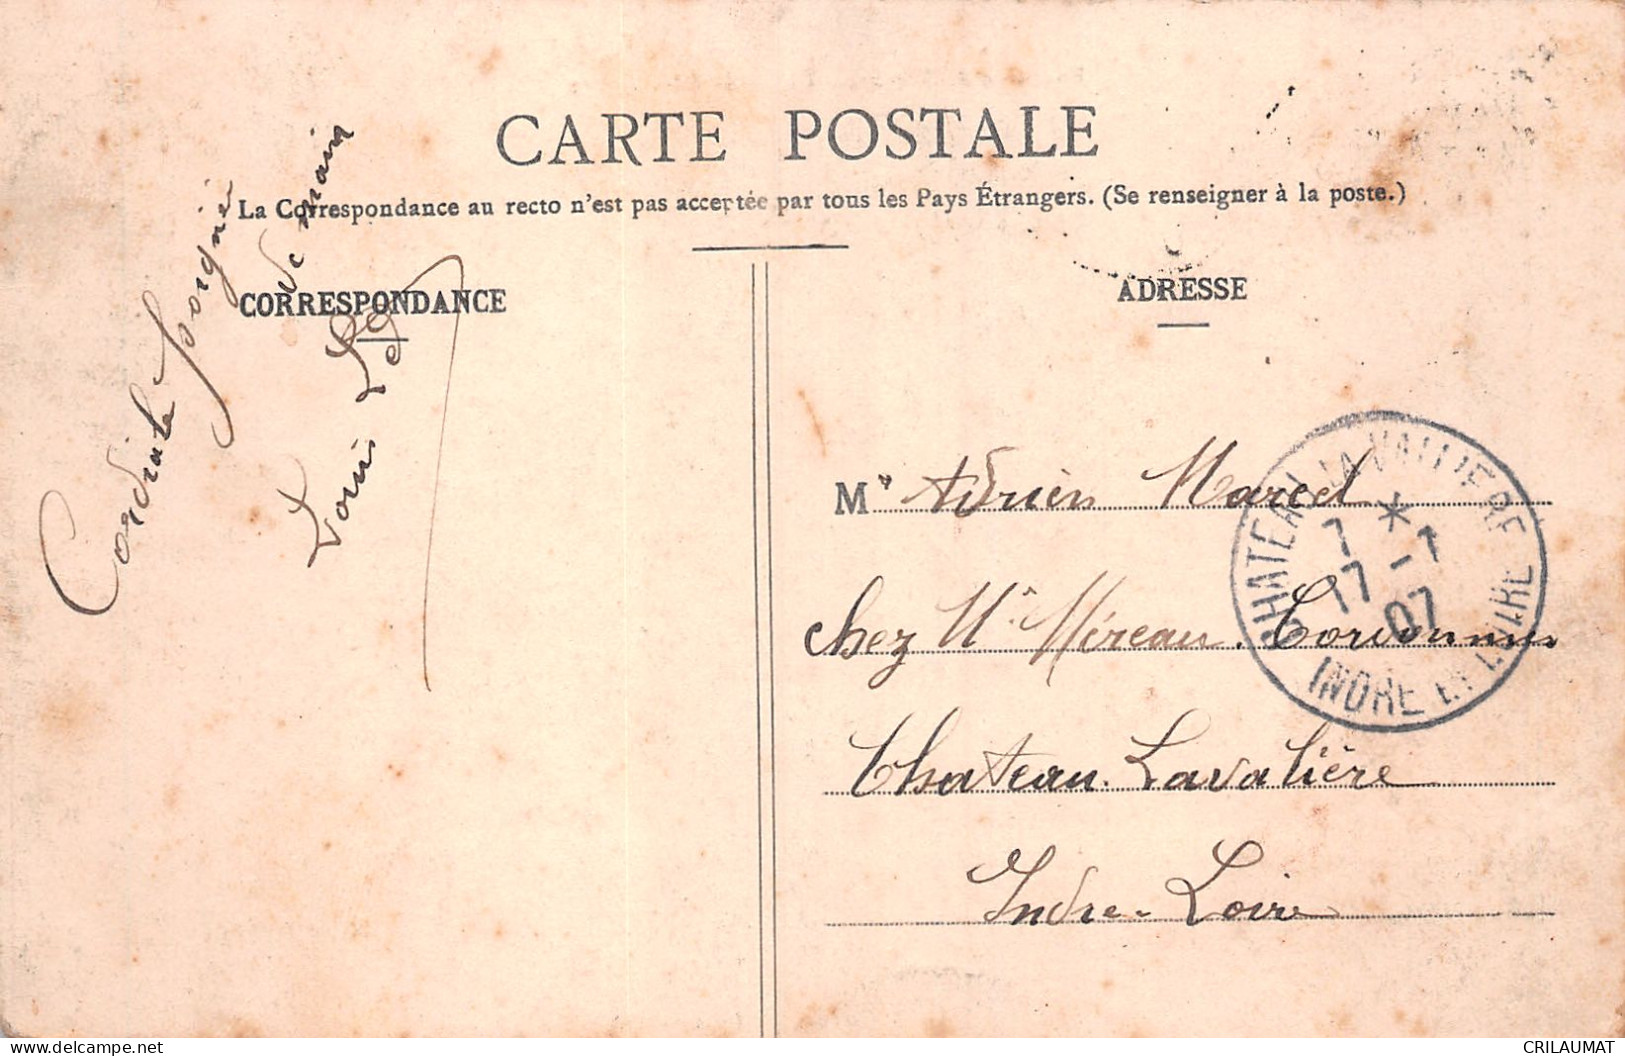 CARTE POSTALE
La Correspondance au recto n'est pas acceptée par tous les Pays Étrangers. (Se renseigner à la poste.)
CORRESPONDANCE
ADRESSE
Cordiale poignée
de main
Louis
Mr Adrien Marcel
chez Mr Méreau. Cordonnier
Chateau. Lavalière
Indre-Loire
CHATEAU LA VALLIERE
7 *
17 -7
07
INDRE ET LOIRE
CRILAUMAT